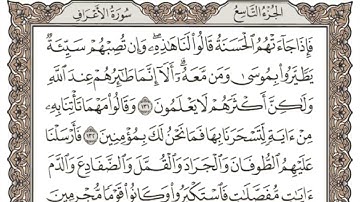 الجزء التاسع
سورة الأعراف
فَإِذَا جَآءَتْهُمُ ٱلْحَسَنَةُ قَالُوا۟ لَنَا هَٰذِهِۦ ۖ وَإِن تُصِبْهُمْ سَيِّئَةٌ
يَطَّيَّرُوا۟ بِمُوسَىٰ وَمَن مَّعَهُۥٓ ۗ أَلَآ إِنَّمَا طَٰٓئِرُهُمْ عِندَ ٱللَّهِ
وَلَٰكِنَّ أَكْثَرَهُمْ لَا يَعْلَمُونَ ١٣١ وَقَالُوا۟ مَهْمَا تَأْتِنَا بِهِۦ
مِنْ ءَايَةٍ لِّتَسْحَرَنَا بِهَا فَمَا نَحْنُ لَكَ بِمُؤْمِنِينَ ١٣٢ فَأَرْسَلْنَا
عَلَيْهِمُ ٱلطُّوفَانَ وَٱلْجَرَادَ وَٱلْقُمَّلَ وَٱلضَّفَادِعَ وَٱلدَّمَ
ءَايَٰتٍ مُّفَصَّلَٰتٍ فَٱسْتَكْبَرُوا۟ وَكَانُوا۟ قَوْمًا مُّجْرِمِينَ